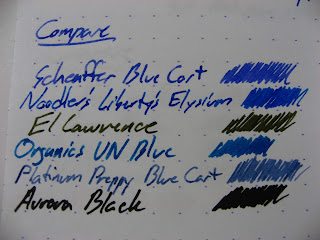 Compare
Scheaffer Blue Cart
Noodler's Liberty's Elysium
El Lawrence
Organics UN Blue
Platinum Preppy Blue Cart
Aurora Black